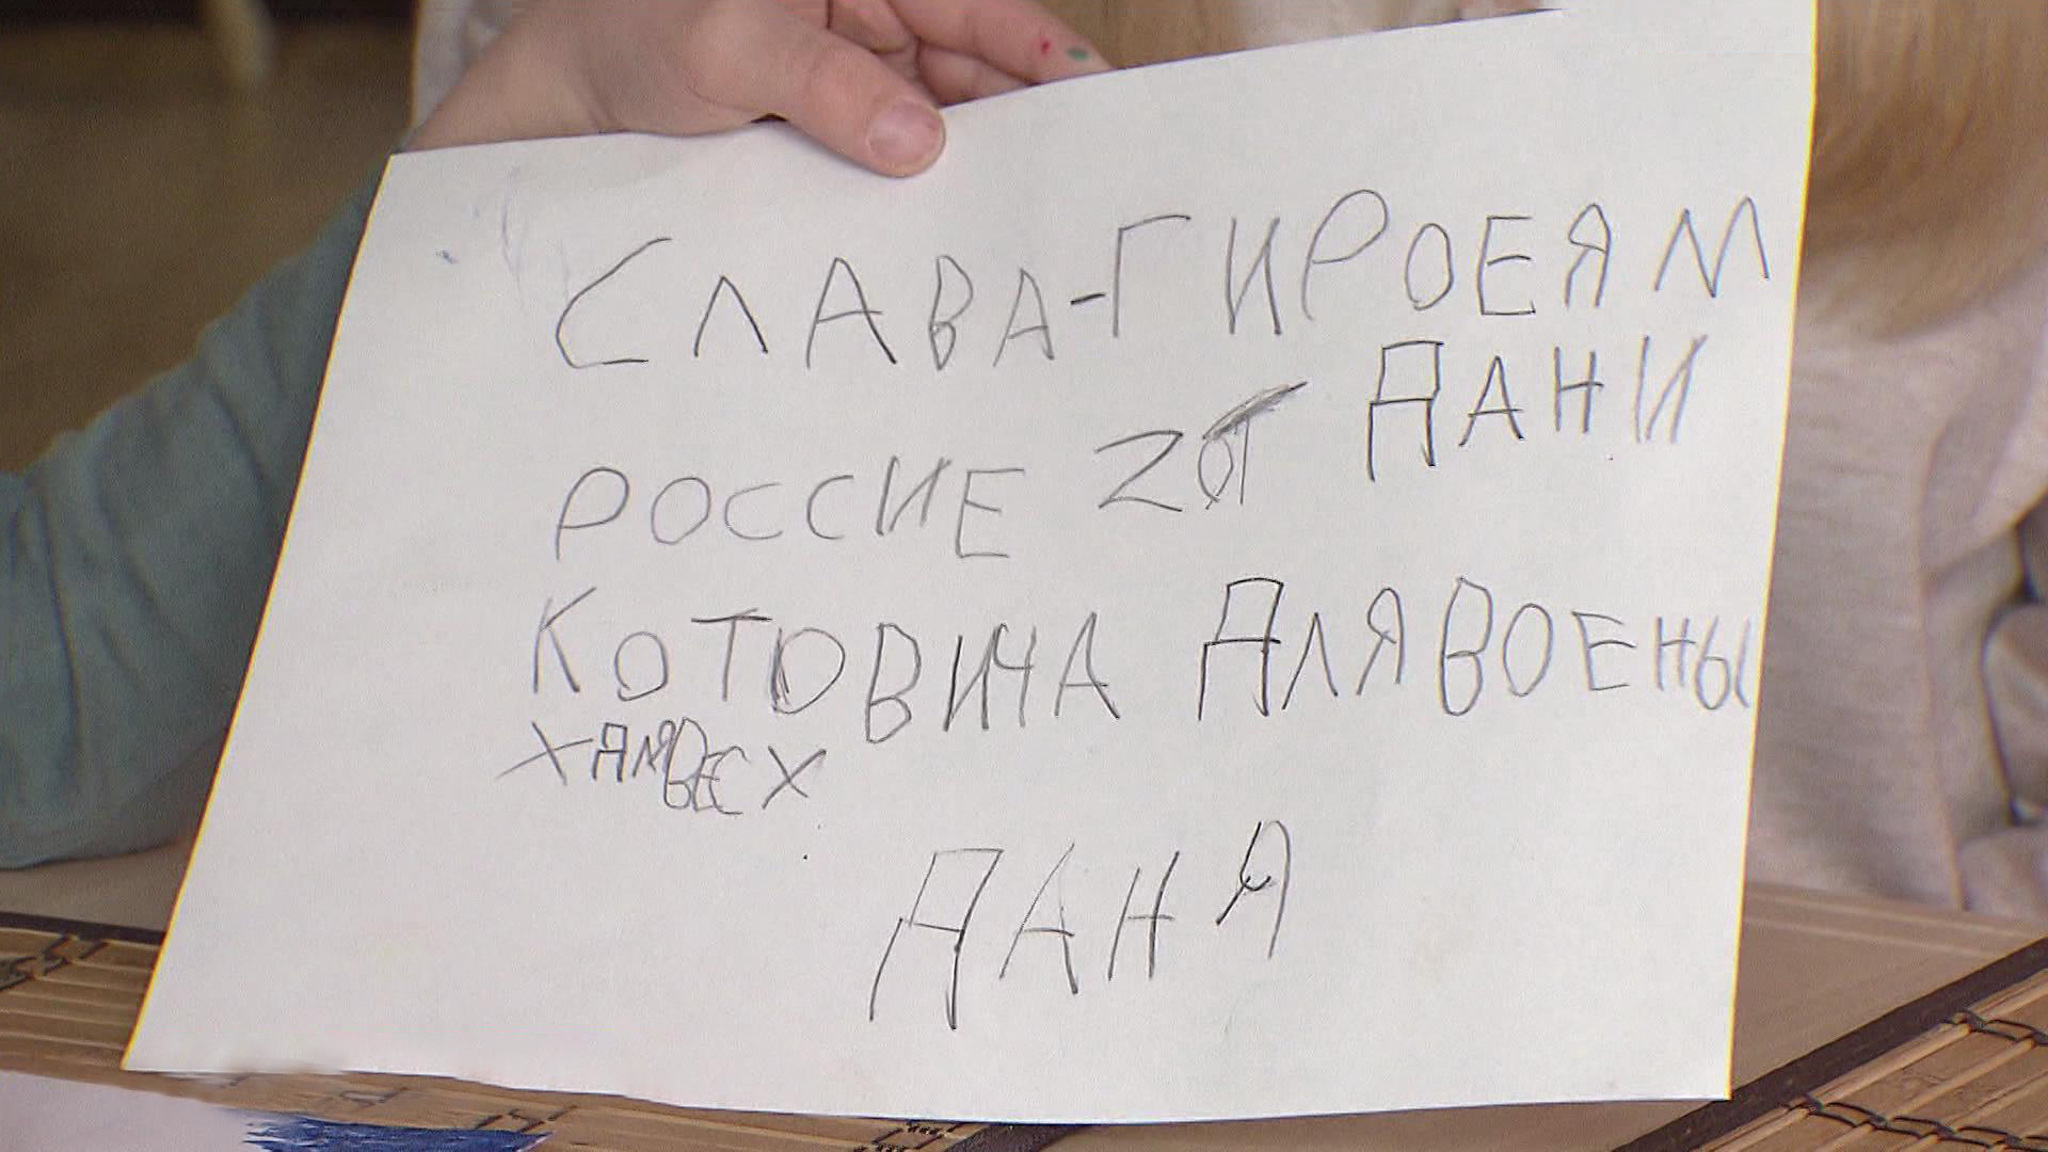 СЛАВА-ГИРОЕЯМ
РОССИЕ Z ОТ ДАНИ
КОТОВИЧА ДЛЯ ВОЕНЫ
Х ДЛЯ ВСЕХ
ДАНЯ